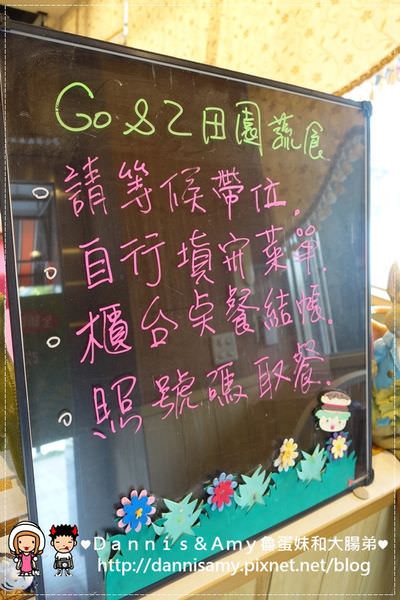 Go 82 田園 蔬食
請等候帶位。
自行填寫菜單.
櫃台點餐結帳.
照號碼取餐.
♥Dannis&Amy魯蛋妹和大腸弟♥
http://dannisamy.pixnet.net/blog